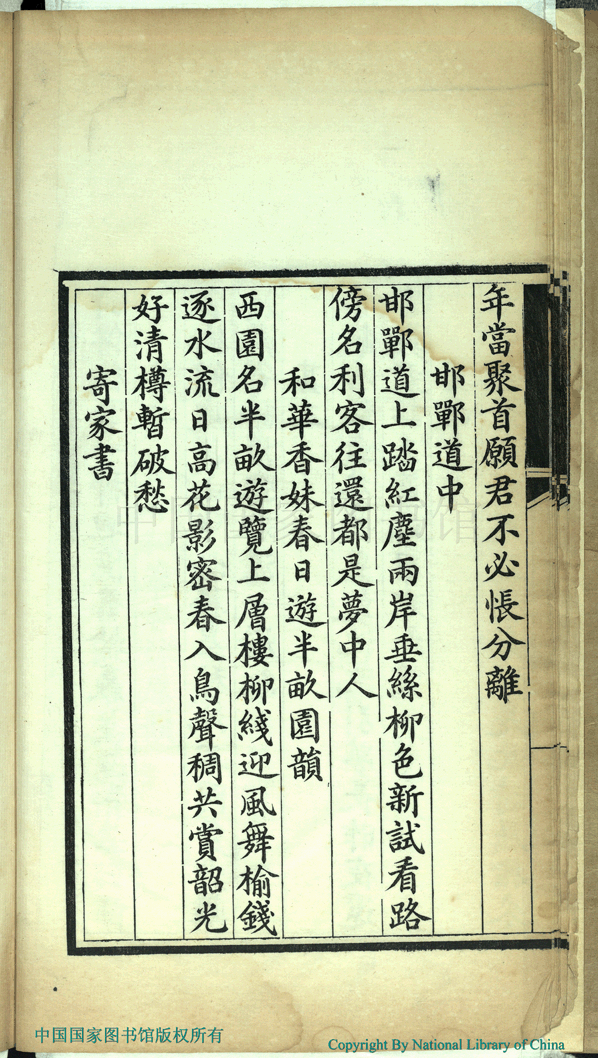 年當聚首願君不必悵分離
邯鄲道中
邯鄲道上踏紅塵兩岸垂絲柳色新試看路
傍名利客往還都是夢中人
和華香妹春日遊半畝園韻
西園名半畝遊覽上層樓柳綫迎風舞榆錢
逐水流日高花影密春入鳥聲稠共賞韶光
好清樽暫破愁
寄家書
中国国家图书馆
中国国家图书馆版权所有
Copyright By National Library of China